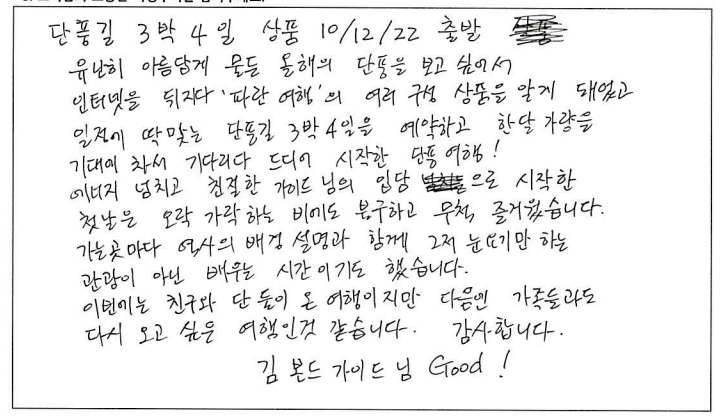 단풍길 3박 4일 상품 10/12/22 출발
유난히 아름답게 물든 올해의 단풍을 보고 싶어서
인터넷을 뒤지다 '파란여행'의 여러 구성 상품을 알게 돼었고
일정에 딱맞는 단풍길 3박4일을 예약하고 한달 가량을
기대에 차서 기다리다 드디어 시작한 단풍여행!
에너지 넘치고 친절한 가이드님의 입담으로 시작한
첫날은 오락 가락하는 비에도 불구하고 무척, 즐거웠습니다.
가는곳마다 역사의 배경 설명과 함께 그저 눈요기만 하는
관광이 아닌 배우는 시간이기도 했습니다.
이번에는 친구와 단 둘이 온 여행이지만 다음엔 가족들과도
다시 오고 싶은 여행인것 같습니다. 감사합니다.
김 본드 가이드님 Good!